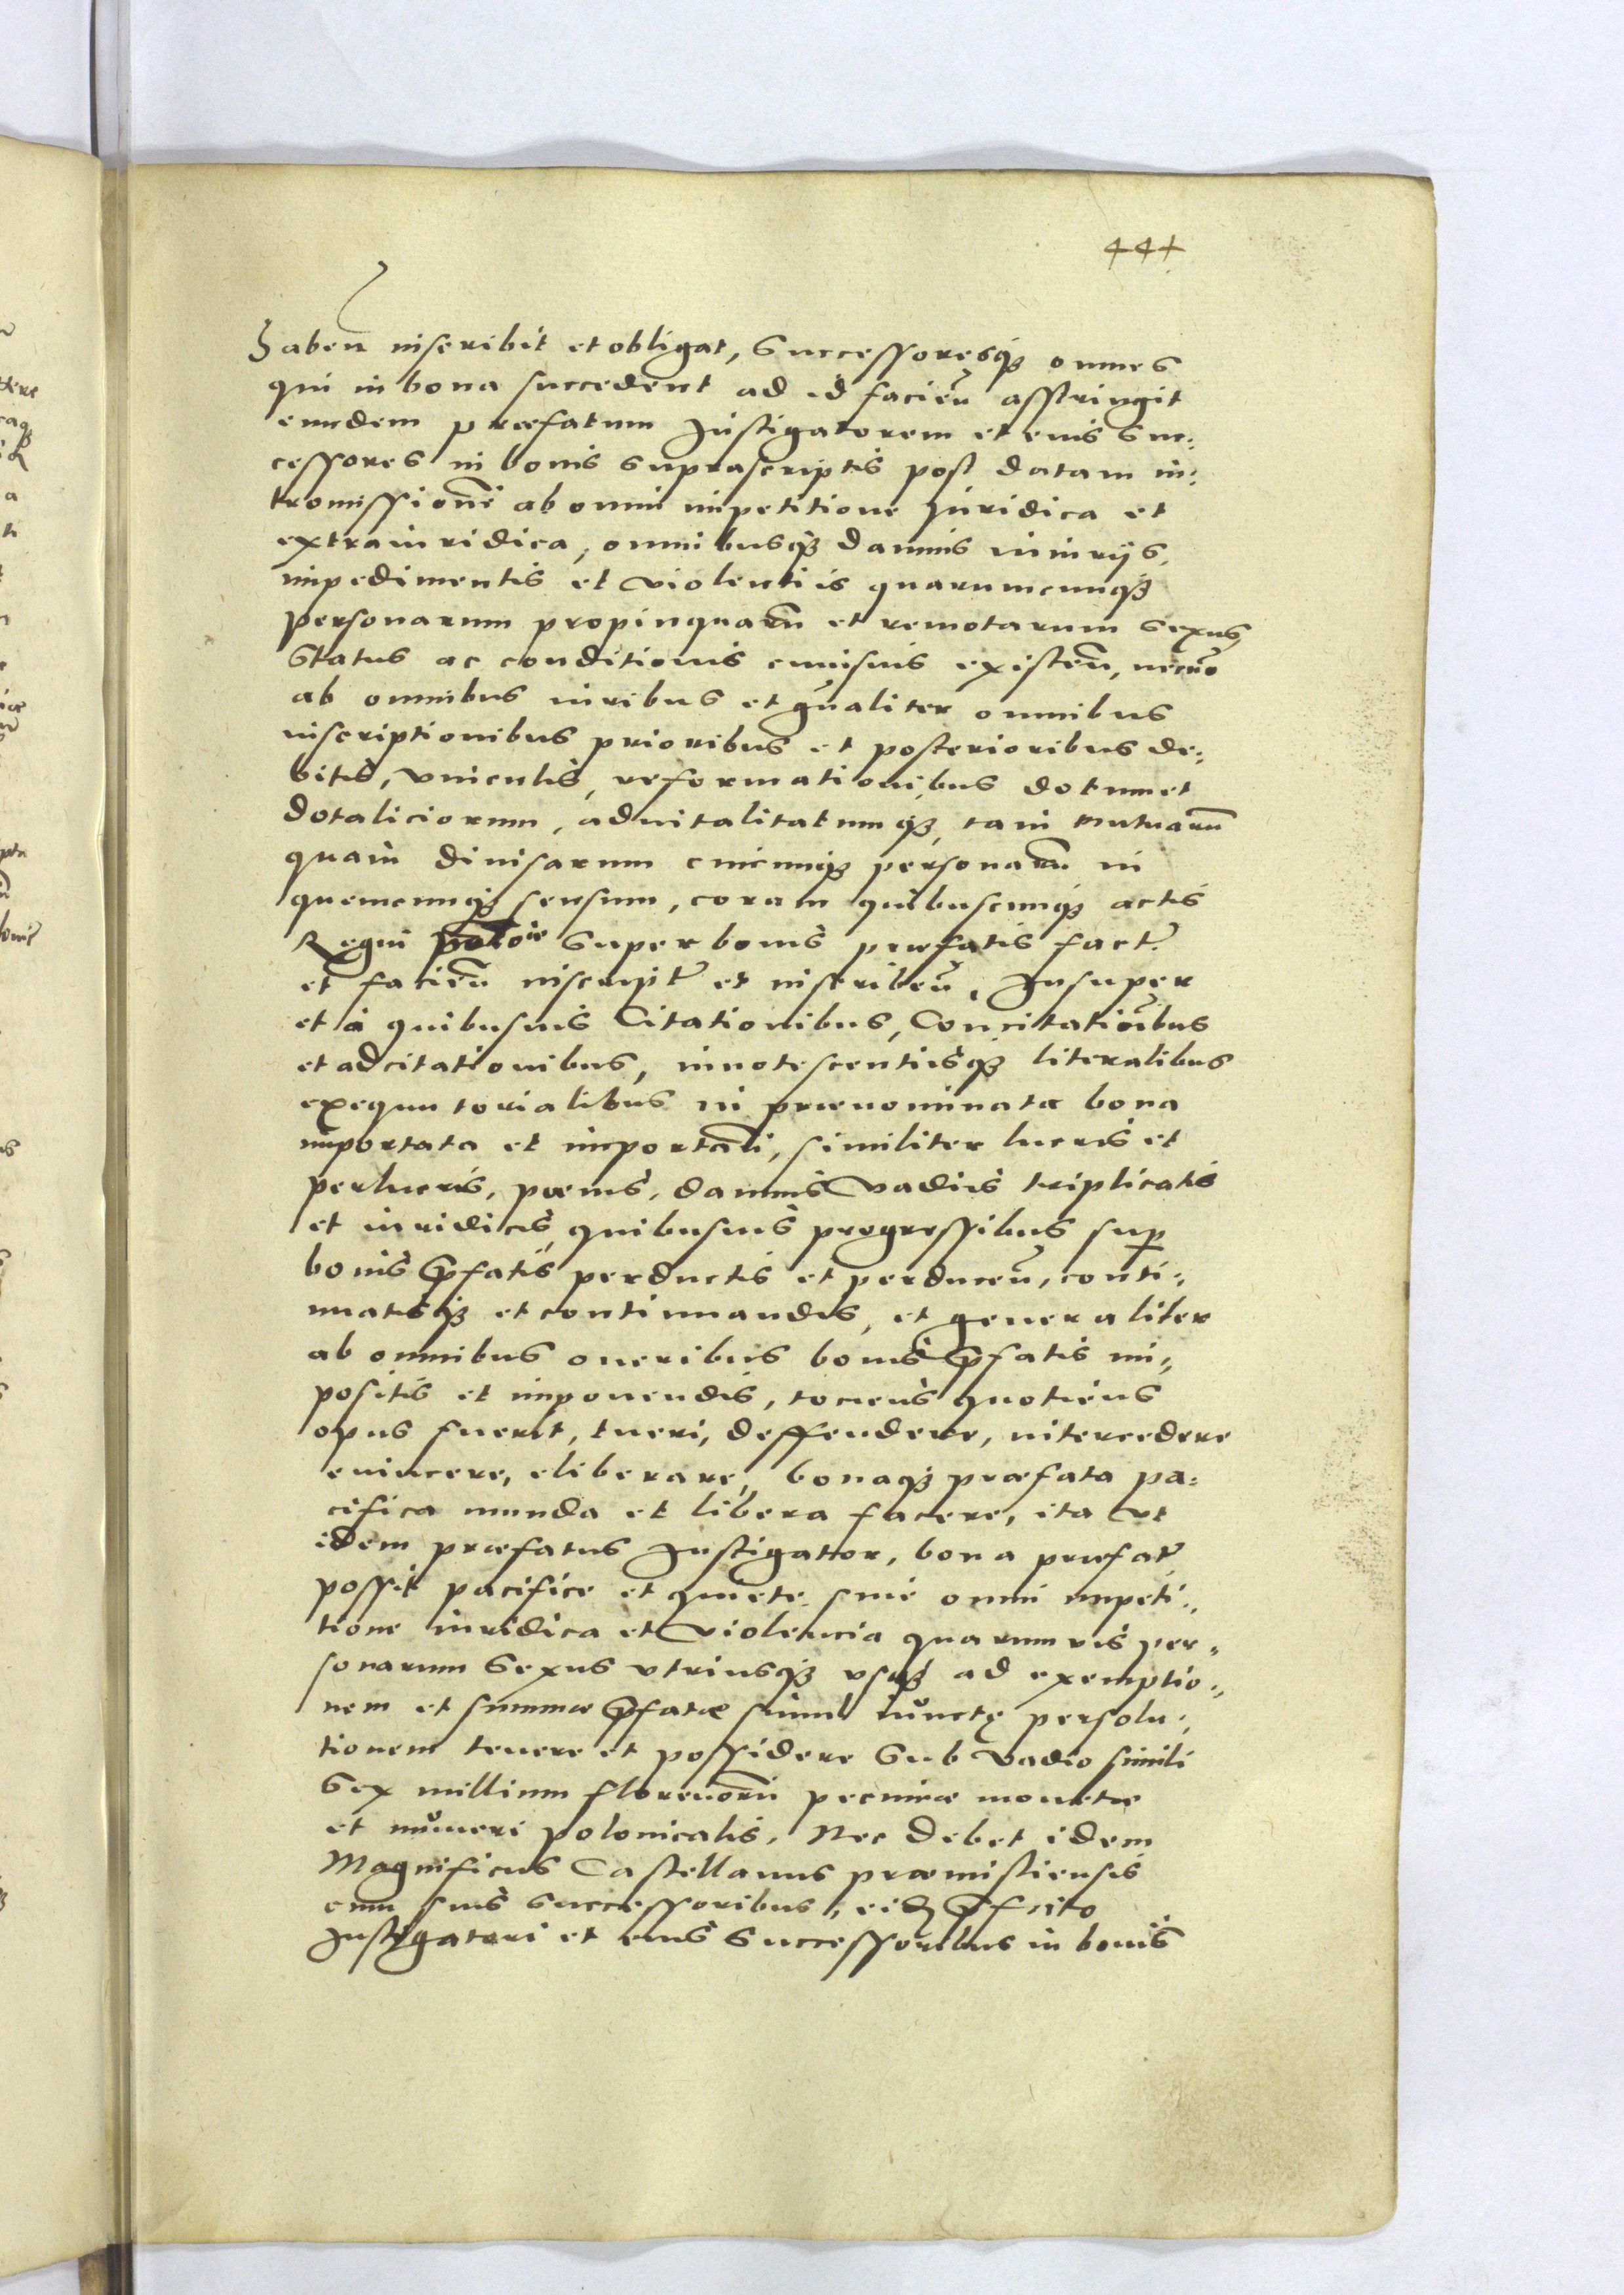 444
Haben inscribit et obligat, Successoresq omnes
qui in bona succedent ad id facień asstringit
eundem præfatum Instigatorem et eius Suc:
cessores in bonis suprascriptis post datam in:
tromissionē ab omni impetitione Iuridica et
extraiuridica, omnibusq damnis iniuriis,
impedimentis et violentiis quarumcunq
personarum propinquarū et remotarum sexus
Status ac conditionis cuiusuis existeñ, necnō
ab omnibus iuribus et gñaliter omnibus
inscriptionibus prioribus et posterioribus de:
bitis, vinculis, reformationibus dotum et
dotaliciorum, aduitalitatumq tam mutuarū
quam diuisarum cuicunq personarū in
quemcunq sensum, coram quibuscunq actis
Regni super bonis præfatis fact
et facień inscript et inscribeñ, Insuper
et a quibusuis Citationibus, Concitatiōibus
et adcitationibus, innotescentiisq literalibus
exequutorialibus in prænominata bona
importata et importañ, similiter lucris et
perlucris, pænis, damnis vadiis triplicatis
et iuridicis quibusuis progressibus sup
bonis pfatis perductis et perduceñ, conti:
nuatisq et continuandis, et generaliter
ab omnibus oneribus bonis pfatis im:
positis et imponendis, tociens quotiens
opus fuerit, tueri, deffendere, intercedere
euincere, eliberare, bonaq præfata pa:
cifica munda et libera facere, ita vt
idem præfatus Instigator, bona præfat
possit pacifice et quiete sine omni impeti:
tione iuridica et violencia quarumvis per:
sonarum sexus vtriusq vsq ad exemptio:
nem et summæ pfatæ simul iunctę persolu:
tionem tenere et possidere sub vadio simili
Sex millium florenorū pecuniæ monetæ
et numeri polonicalis. Nec debet idem
Magnificus Castellanus præmisliensis
cum suis successoribus, eidem pfato
Instigatori et eius Successoribus in bonis